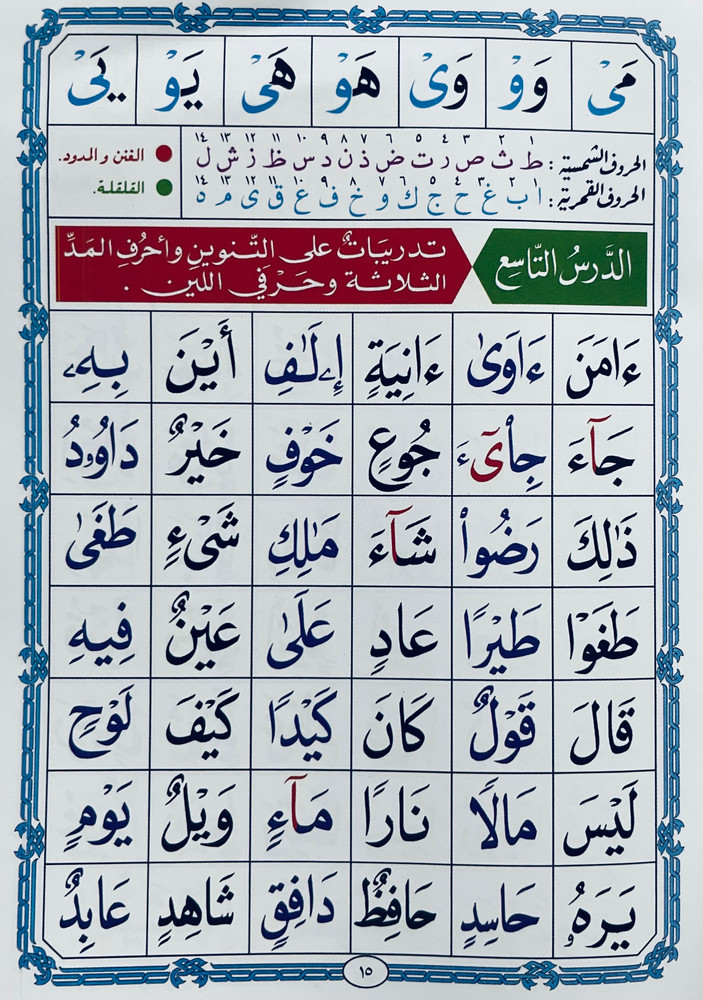 مَىْ وَوْ وَىْ هَوْ هَىْ يَوْ يَىْ
١ ٢ ٣ ٤ ٥ ٦ ٧ ٨ ٩ ١٠ ١١ ١٢ ١٣ ١٤
الحروف الشمسية : ط ث ص ر ت ض ذ ن د س ظ ز ش ل
الغنن والمدود.
١ ٢ ٣ ٤ ٥ ٦ ٧ ٨ ٩ ١٠ ١١ ١٢ ١٣ ١٤
الحروف القمرية : ا ب غ ح ج ك و خ ف ع ق ى م ه
القلقلة.
الدَّرسُ التَّاسِع
تدريبَاتٌ على التَّنوينِ وأحرُفِ المَدِّ
الثلاثة وحَرْفَيِ اللين .
ءَامَنَ ءَاوَىٰ ءَانِيَةٍ إِۦلَٰفِ أَيْنَ بِهِۦ
جَآءَ جِا۟ىٓءَ جُوعٍ خَوْفٍ خَيْرٌ دَاوُۥدُ
ذَٰلِكَ رَضُوا۟ شَآءَ مَٰلِكِ شَىْءٍ طَغَىٰ
طَغَوْا۟ طَيْرًا عَادٍ عَلَىٰ عَيْنٌ فِيهِ
قَالَ قَوْلٌ كَانَ كَيْدًا كَيْفَ لَوْحٍ
لَيْسَ مَالًا نَارًا مَآءٍ وَيْلٌ يَوْمٍ
يَرَهُۥ حَاسِدٍ حَافِظٌ دَافِقٍ شَاهِدٍ عَابِدٌ
١٥